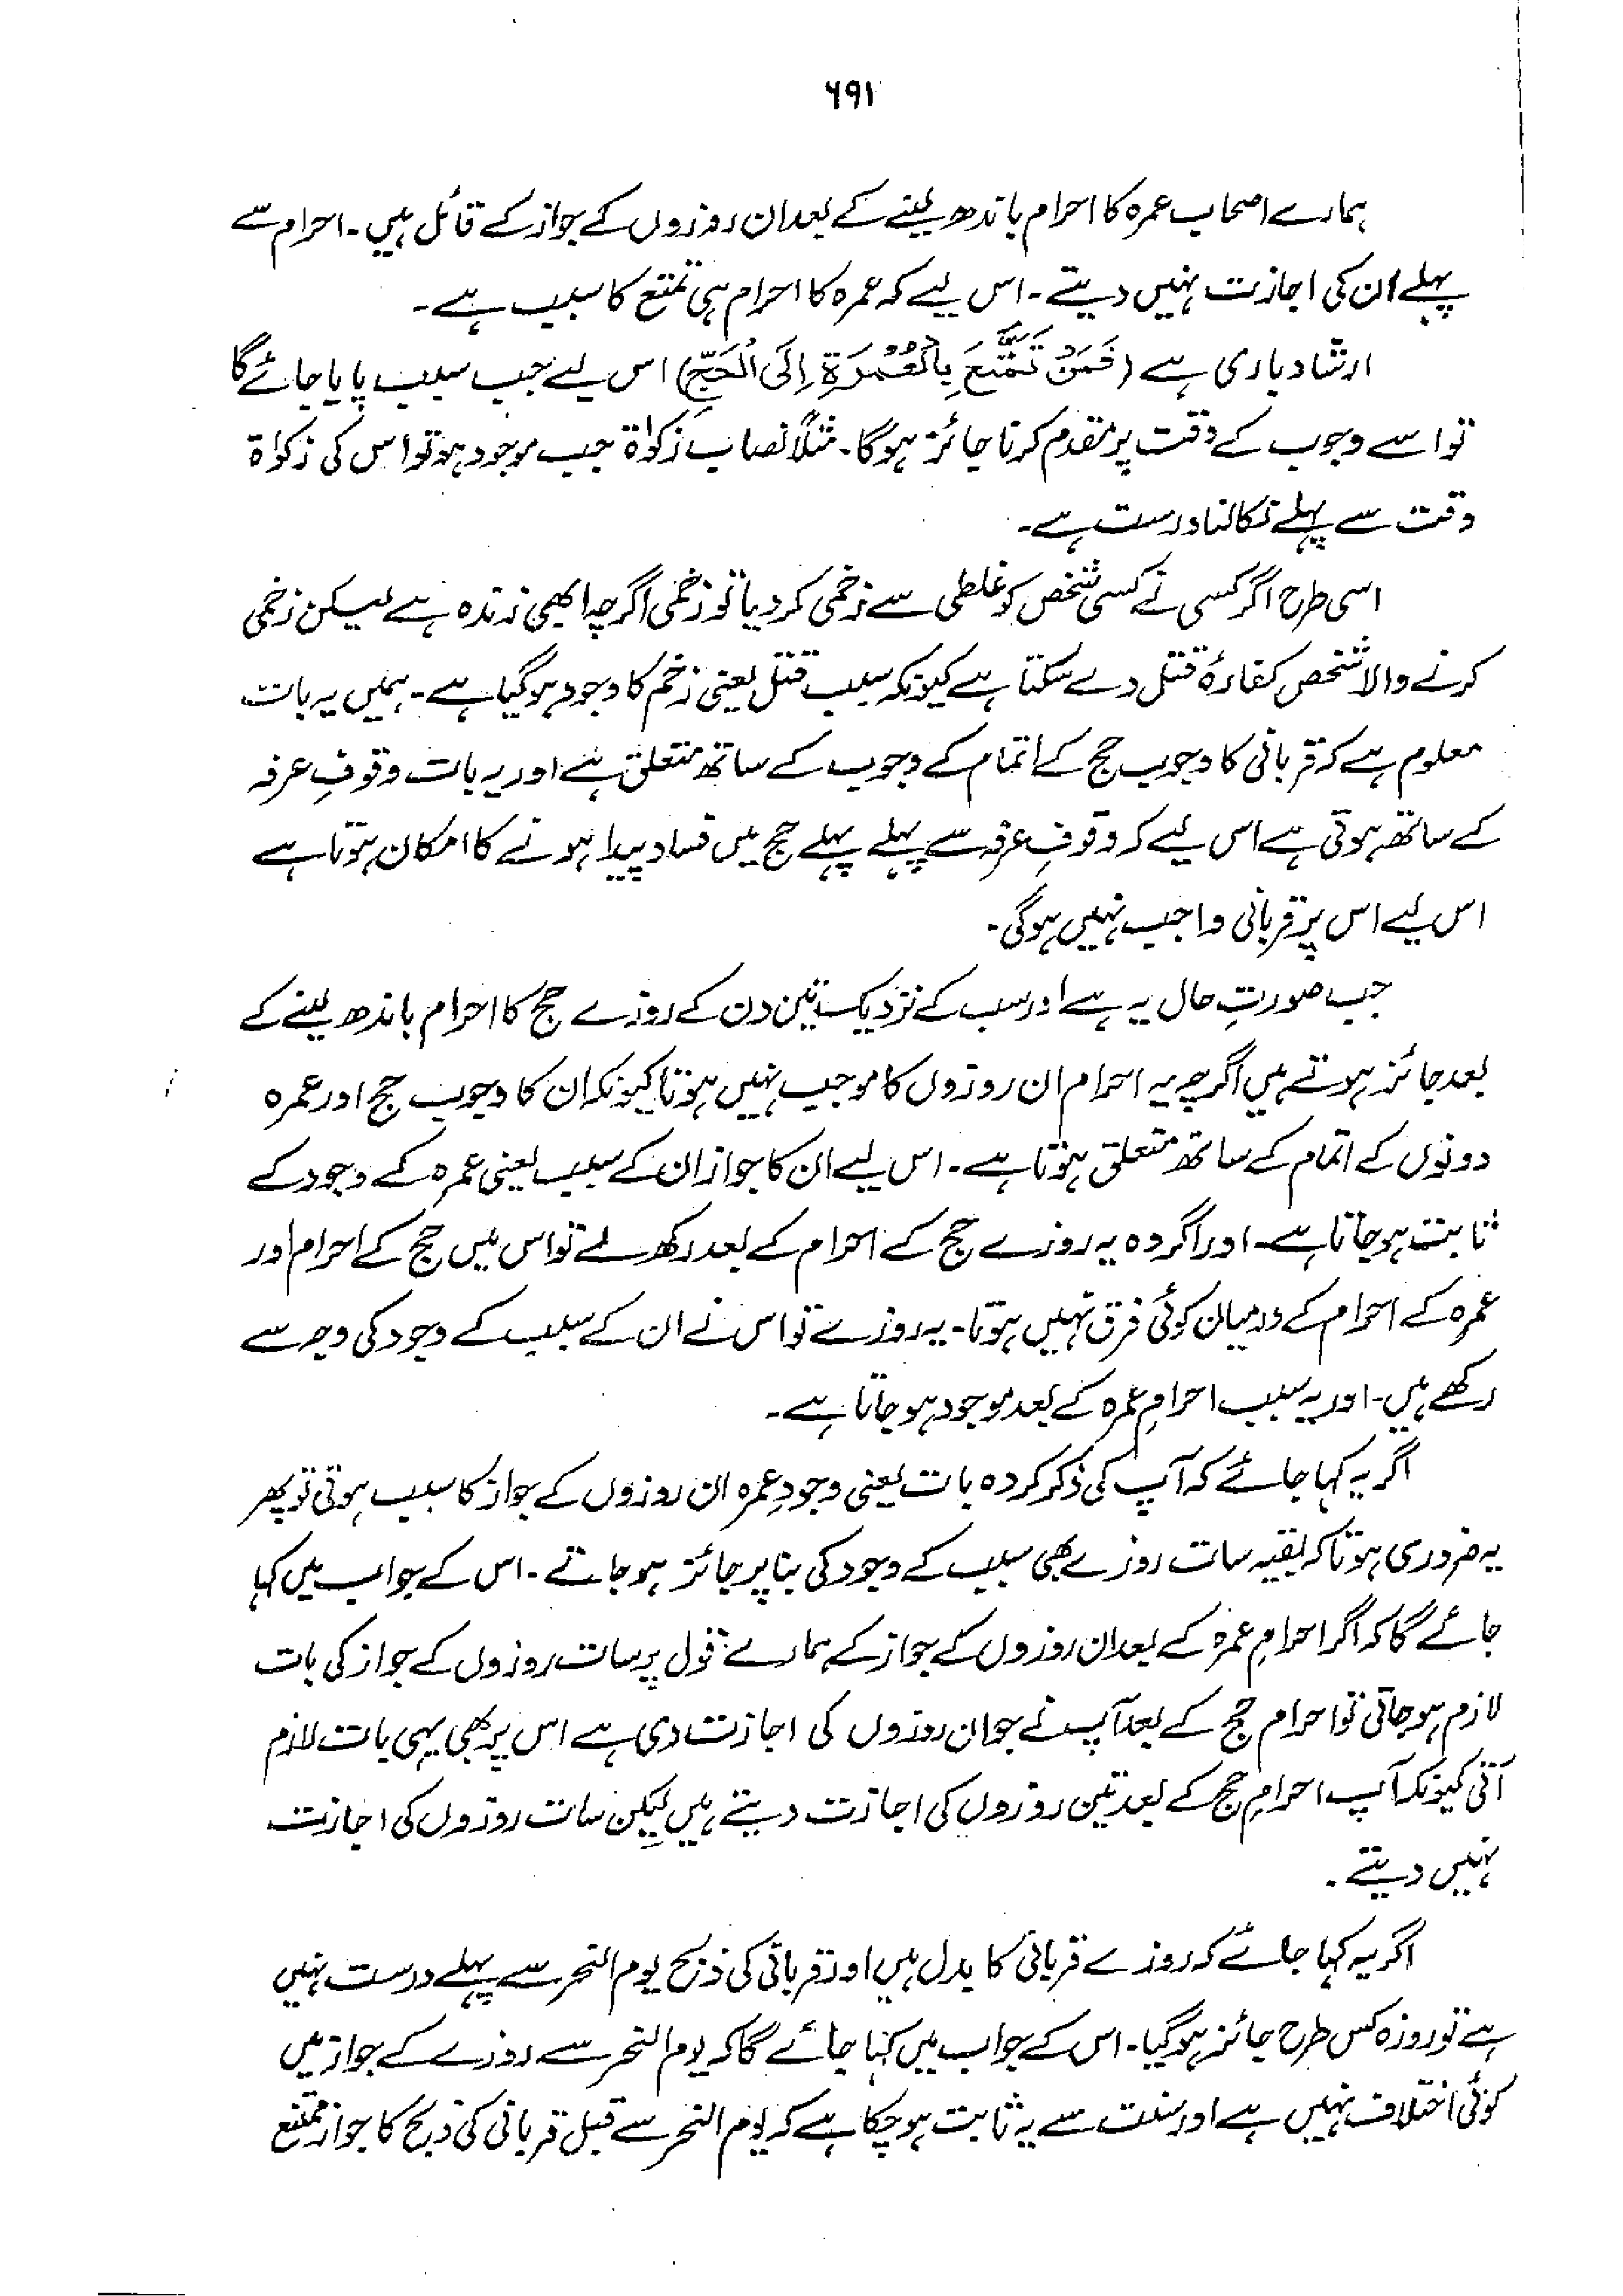 ۶۹۱
ہمارے اصحاب عمرہ کا احرام باندھ لینے کے بعد ان روزوں کے جواز کے قائل ہیں۔ احرام سے
پہلے ان کی اجازت نہیں دیتے۔ اس لیے کہ عمرہ کا احرام ہی تمتع کا سبب ہے۔
ارشاد باری ہے (فَمَنْ تَمَتَّعَ بِالْعُمْرَةِ اِلَى الْحَجِّ) اس لیے جب سبب پایا جائے گا
تو اسے وجوب کے وقت پر مقدم کرنا جائز ہوگا۔ مثلاً نصاب زکوٰۃ جب موجود ہو تو اس کی زکوٰۃ
وقت سے پہلے نکالنا درست ہے۔
اسی طرح اگر کسی نے کسی شخص کو غلطی سے زخمی کر دیا تو زخمی اگرچہ ابھی زندہ ہے لیکن زخمی
کرنے والا شخص کفارۂ قتل دے سکتا ہے کیونکہ سبب قتل یعنی زخم کا وجود ہو گیا ہے۔ ہمیں یہ بات
معلوم ہے کہ قربانی کا وجوب حج کے اتمام کے وجوب کے ساتھ متعلق ہے اور یہ بات وقوفِ عرفہ
کے ساتھ ہوتی ہے اس لیے کہ وقوفِ عرفہ سے پہلے پہلے حج میں فساد پیدا ہونے کا امکان ہوتا ہے
اس لیے اس پر قربانی واجب نہیں ہوگی۔
جب صورتِ حال یہ ہے اور سب کے نزدیک تین دن کے روزے حج کا احرام باندھ لینے کے
بعد جائز ہوتے ہیں اگرچہ یہ احرام ان روزوں کا موجب نہیں ہوتا کیونکہ ان کا وجوب حج اور عمرہ
دونوں کے اتمام کے ساتھ متعلق ہوتا ہے۔ اس لیے ان کا جواز ان کے سبب یعنی عمرہ کے وجود کے
ثابت ہو جاتا ہے۔ اور اگر وہ یہ روزے حج کے احرام کے بعد رکھ لے تو اس میں حج کے احرام اور
عمرہ کے احرام کے درمیان کوئی فرق نہیں ہوتا۔ یہ روزے تو اس نے ان کے سبب کے وجود کی وجہ سے
رکھے ہیں۔ اور یہ سبب احرامِ عمرہ کے بعد موجود ہو جاتا ہے۔
اگر یہ کہا جائے کہ آپ کی ذکر کردہ بات یعنی وجودِ عمرہ ان روزوں کے جواز کا سبب ہوتی تو پھر
یہ ضروری ہوتا کہ بقیہ سات روزے بھی سبب کے وجود کی بنا پر جائز ہو جاتے۔ اس کے جواب میں کہا
جائے گا کہ اگر احرامِ عمرہ کے بعد ان روزوں کے جواز کے ہمارے قول پر سات روزوں کے جواز کی بات
لازم ہو جاتی تو احرام حج کے بعد آپ نے جو ان روزوں کی اجازت دی ہے اس پر بھی یہی بات لازم
آتی کیونکہ آپ احرامِ حج کے بعد تین روزوں کی اجازت دیتے ہیں لیکن سات روزوں کی اجازت
نہیں دیتے۔
اگر یہ کہا جائے کہ روزے قربانی کا بدل ہیں اور قربانی کی ذبح یوم النحر سے پہلے درست نہیں
ہے تو روزہ کس طرح جائز ہو گیا۔ اس کے جواب میں کہا جائے گا کہ یوم النحر سے روزے کے جواز میں
کوئی اختلاف نہیں ہے اور سنت سے یہ ثابت ہو چکا ہے کہ یوم النحر سے قبل قربانی کی ذبح کا جواز ممتنع